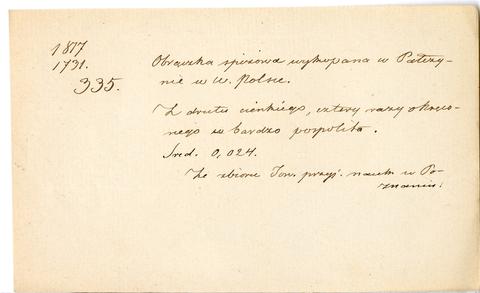 1817
1731.
335.
Obrączka spiżowa wykopana w Pałczy-
nie w W. Polsce.
Z drutu cienkiego, cztery razy okręco-
nego bardzo pospolita.
Śred. 0,024.
Ze zbioru Tow. przyj. nauk w Po-
znaniu.